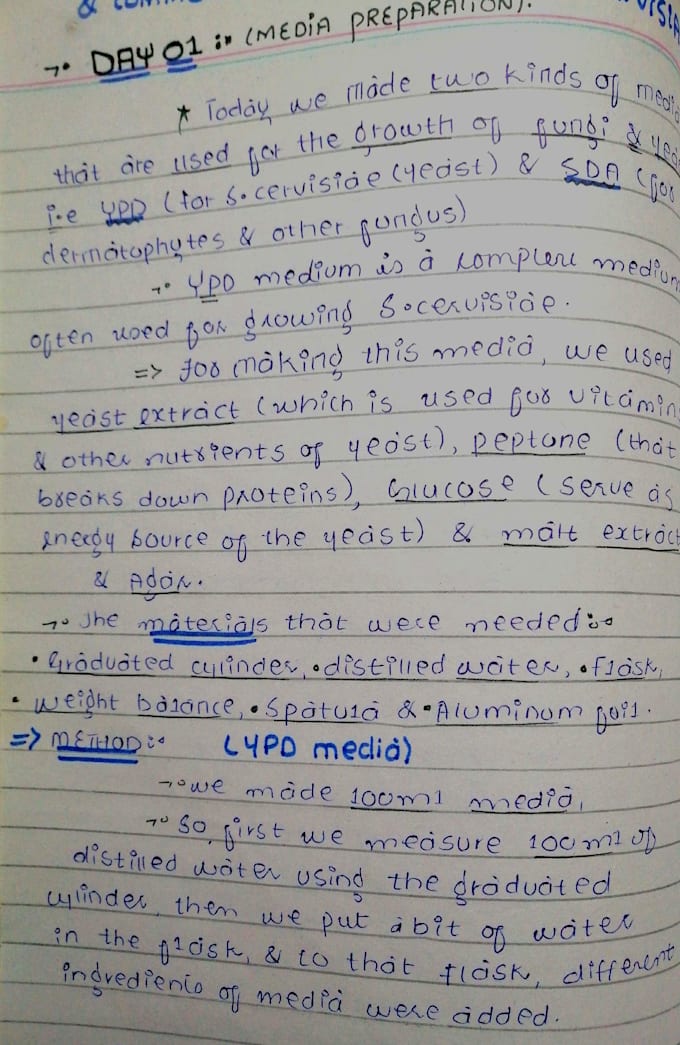 & 
→• DAY 01 :• (MEDIA PREPARATION).
* Today we made two kinds of media
that are used for the growth of fungi & yea
i.e YPD (for S.cervisiae (yeast) & SDA (for
dermatophytes & other fungus)
→• YPD medium is a complere medium
often used for growing S.cervisiae.
=> for making this media, we used
yeast extract (which is used for vitamin
& other nutrients of yeast), peptone (that
breaks down proteins), Glucose (serve as
energy source of the yeast) & malt extract
& Agar.
→• The materials that were needed:•
• Graduated cylinder, • distilled water, • flask,
• weight balance, • Spatula & • Aluminum foil.
=> METHOD:• (YPD media)
→• we made 100ml media,
→• So, first we measure 100ml of
distilled water using the graduated
cylinder, then we put a bit of water
in the flask, & to that flask, different
ingredients of media were added.